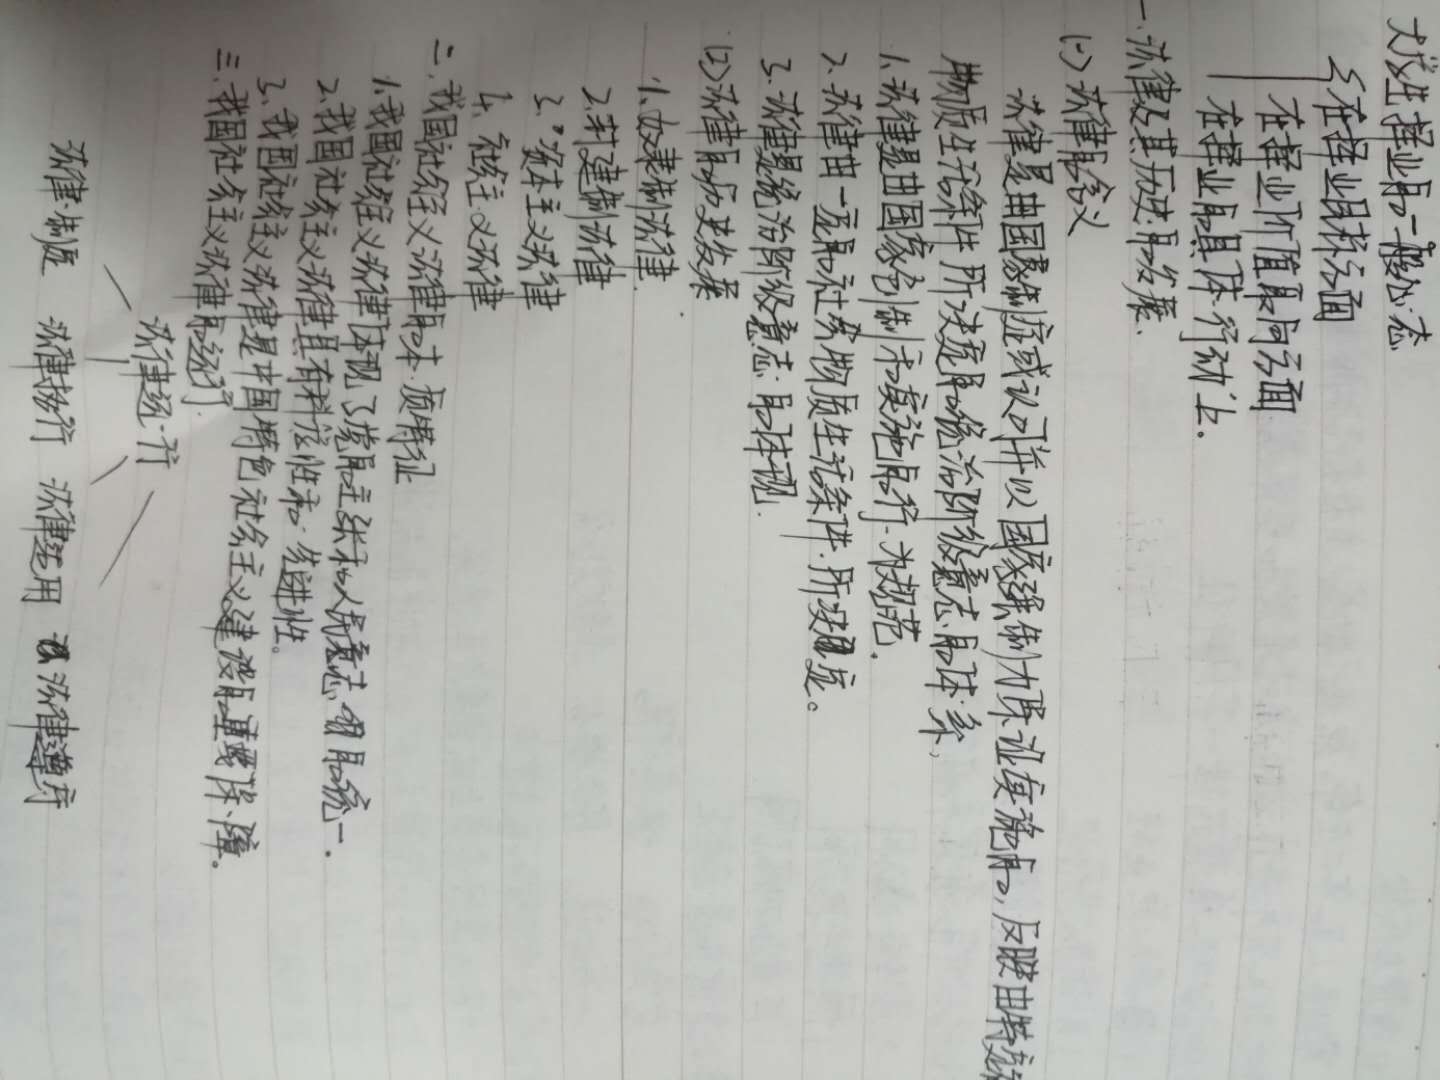 大学生择业的一般心态
在择业目标方面
在择业价值取向方面
在择业的具体行动上.
一.法律及其历史的发展.
(一)法律的含义
法律是由国家制定或认可并以国家强制力保证实施的,反映由特定
物质生活条件所决定的统治阶级意志的体系,
1.法律是由国家创制而实施的行为规范.
2.法律由一定的社会物质生活条件所决定。
3.法律是统治阶级意志的体现.
(二)法律的历史发展
1.奴隶制法律.
2.封建制法律
3.资本主义法律
4.社会主义法律
二.我国社会主义法律的本质特征
1.我国社会主义法律体现了党的主张和人民意志的统一.
2.我国社会主义法律具有科学性和先进性。
3.我国社会主义法律是中国特色社会主义建设的重要保障。
三.我国社会主义法律的运行.
法律运行
法律制定 法律执行 法律适用 法律遵守